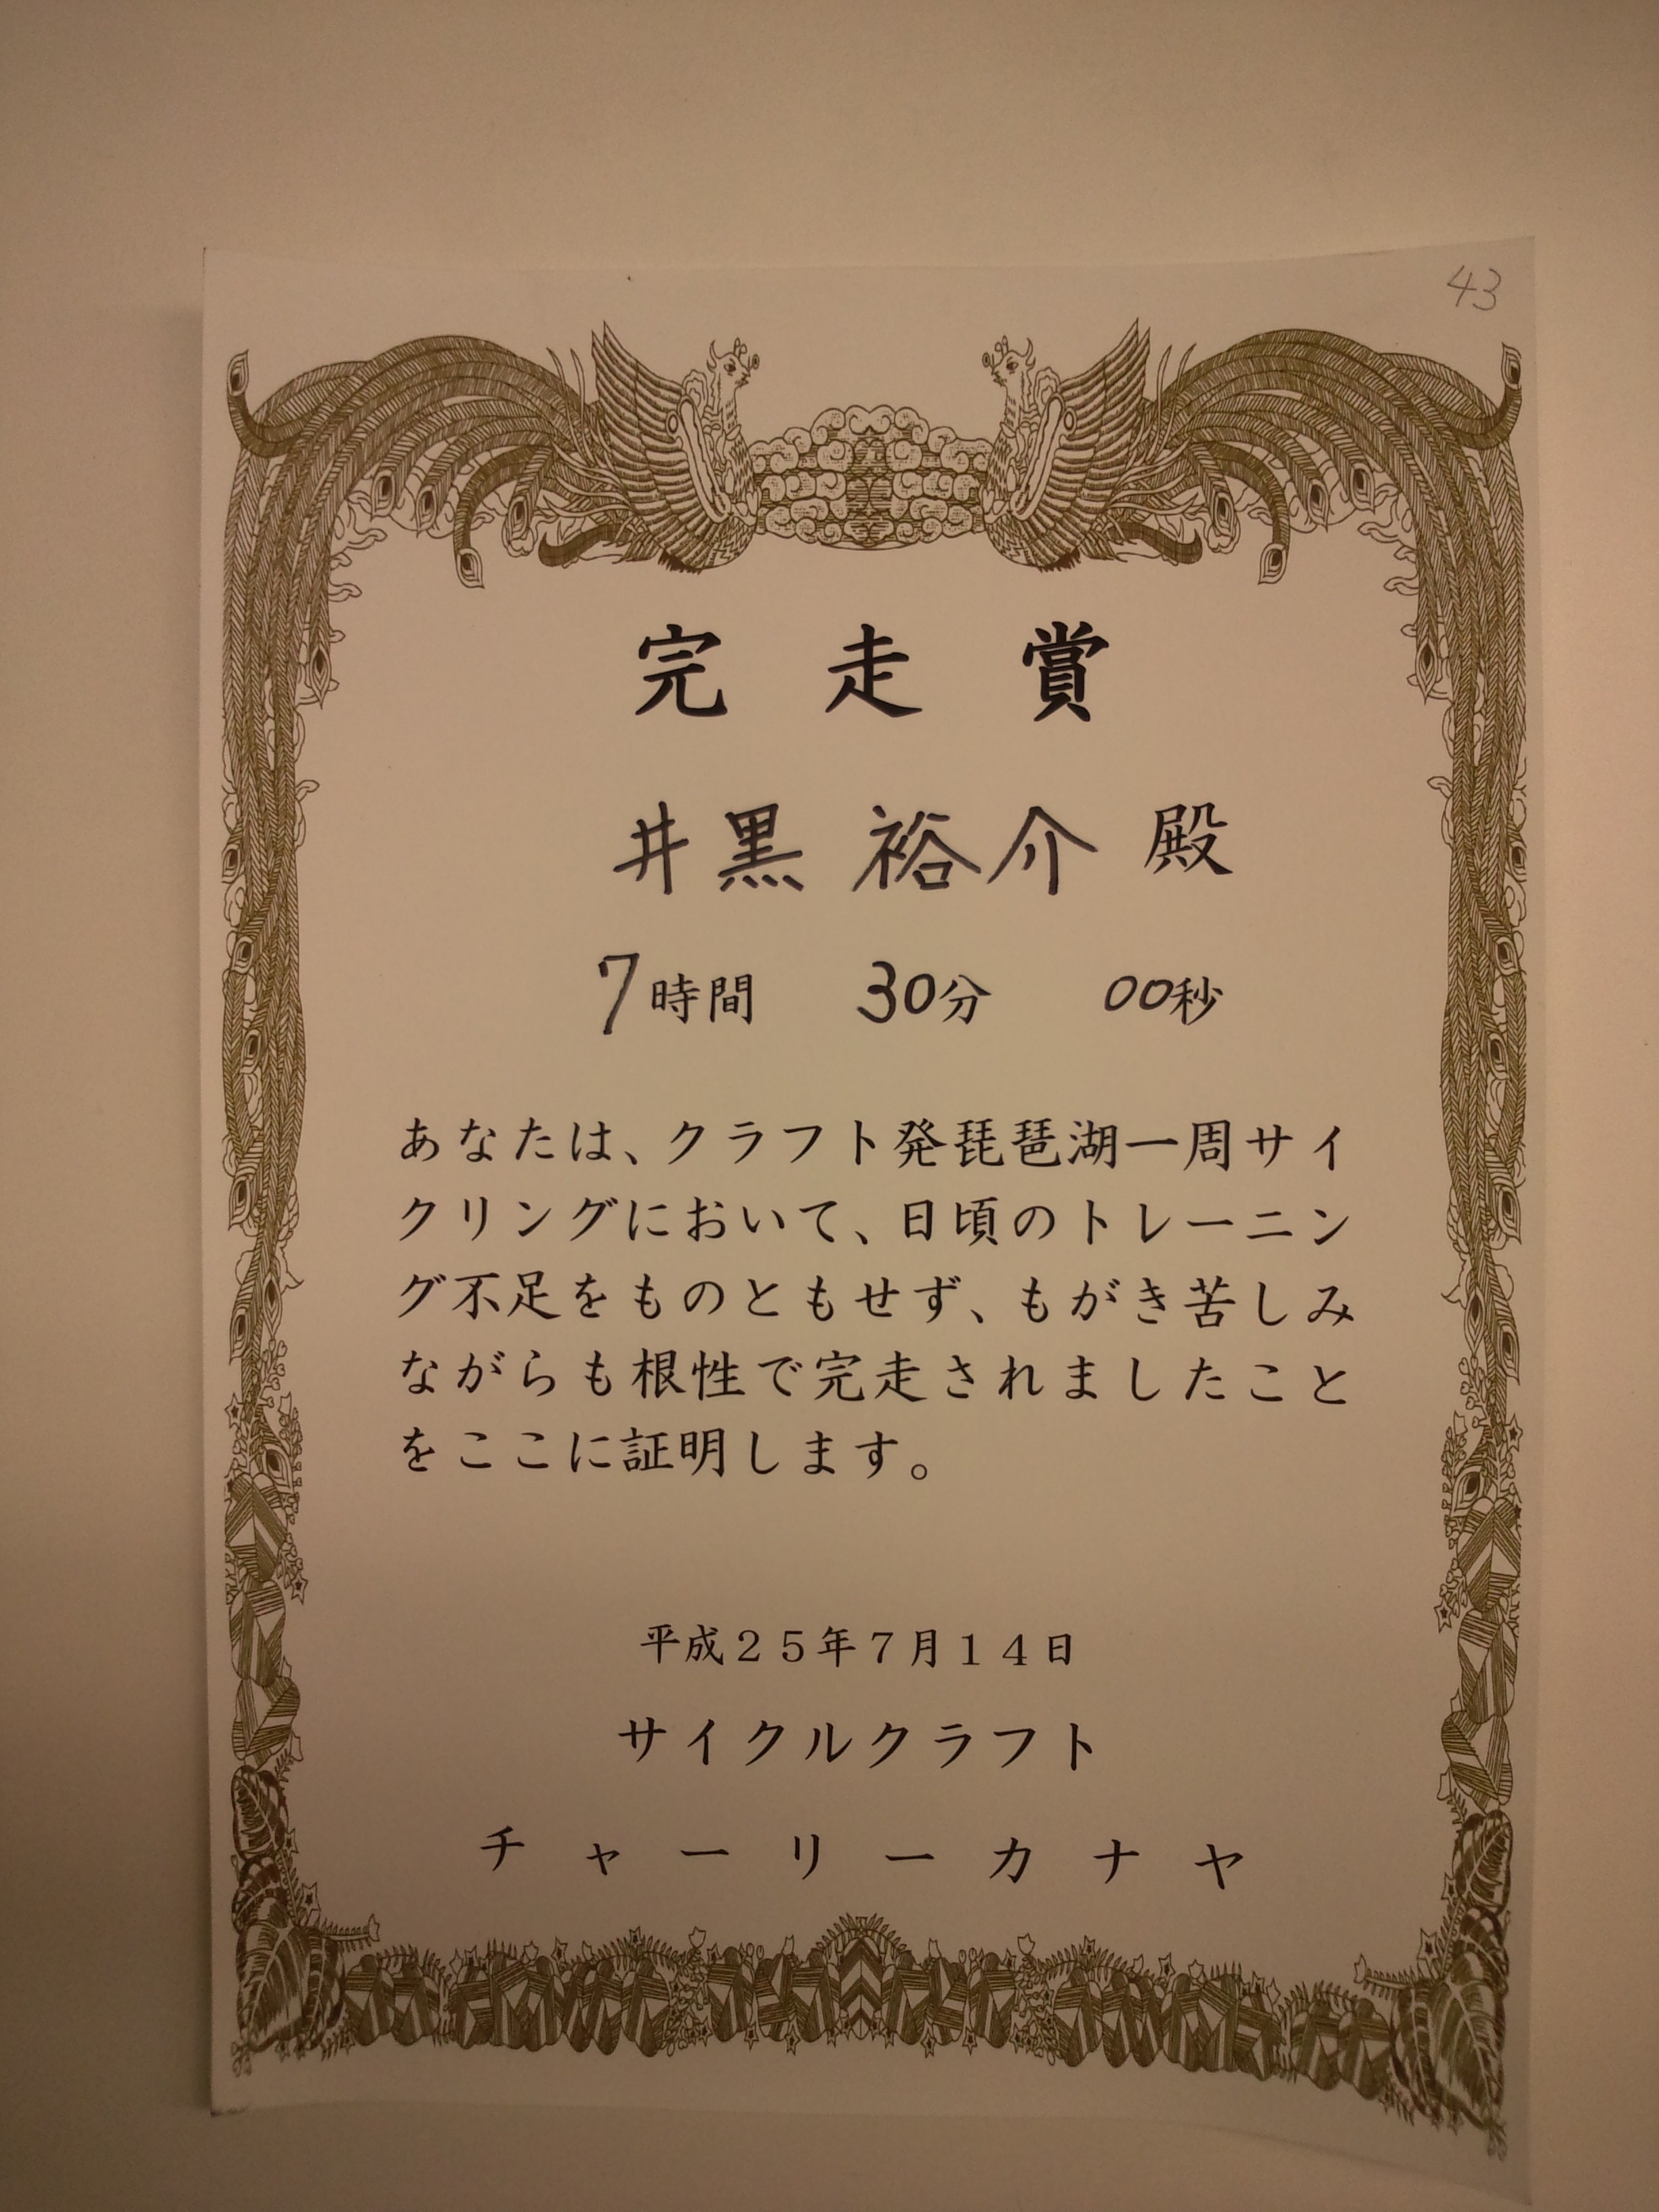 43
完走賞
井黒 裕介 殿
7時間 30分 00秒
あなたは、クラフト発琵琶湖一周サイ
クリングにおいて、日頃のトレーニン
グ不足をものともせず、もがき苦しみ
ながらも根性で完走されましたこと
をここに証明します。
平成２５年７月１４日
サイクルクラフト
チャーリーカナヤ